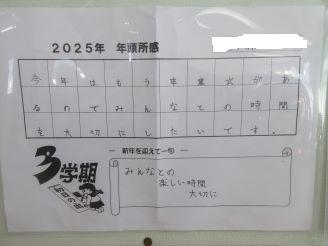 2025年 年頭所感
今年はもう卒業式があ
るのでみんなとの時間
を大切にしたいです。
― 新年を迎えて一句 ―
3学期
みんなとの
楽しい時間
大切に